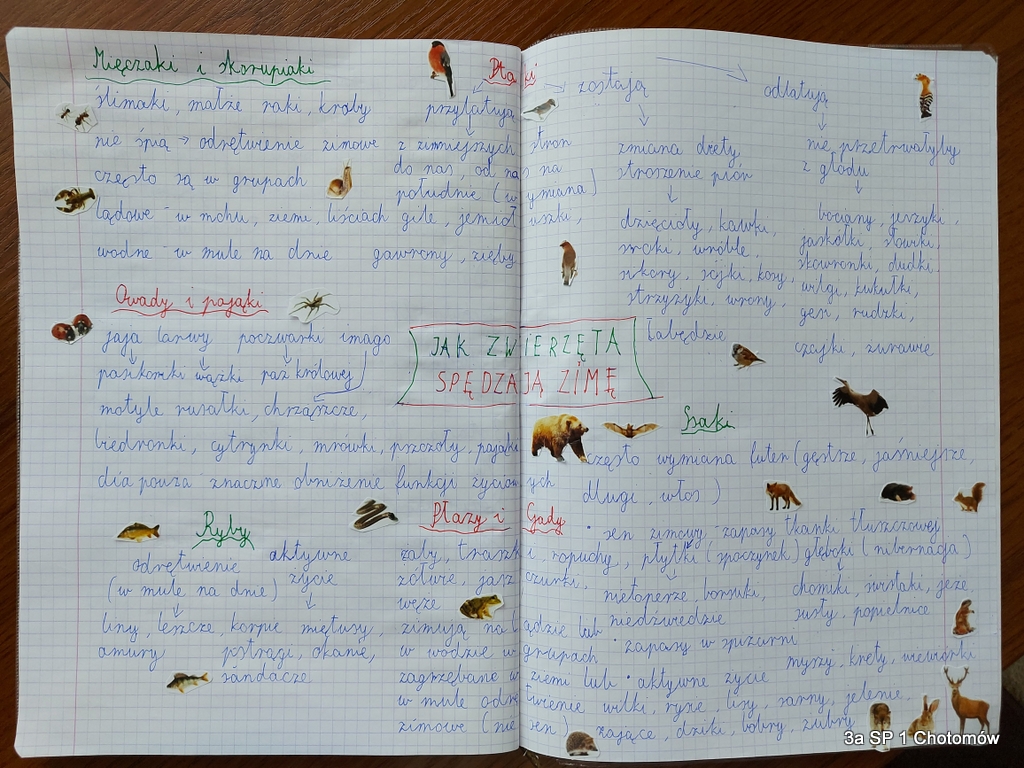 Mięczaki i skorupiaki
ślimaki, małże raki, kraby
nie śpią → odrętwienie zimowe
często są w grupach
lądowe - w mchu, ziemi, liściach
wodne - w mule na dnie
Ptaki
przylatują
z zimniejszych stron
do nas, od nas na
południe (wymiana)
gile, jemiołuszki,
gawrony, zięby
zostają
zmiana diety,
stroszenie piór
dzięcioły, kawki,
sroki, wróble,
sikory, sójki, kosy,
strzyżyki, wrony,
łabędzie
odlatują
nie przetrwałyby
z głodu
bociany, jerzyki,
jaskółki, słowiki,
skowronki, dudki,
wilgi, kukułki,
gęsi, rudziki,
czajki, żurawie
Owady i pająki
jaja larwy poczwarki imago
pasikoniki ważki paź królowej
motyle rusałki, chrząszcze,
biedronki, cytrynki, mrówki, pszczoły, pająki
diapauza znaczne obniżenie funkcji życiowych
JAK ZWIERZĘTA
SPĘDZAJĄ ZIMĘ
Ssaki
często wymiana futer (gęstsze, jaśniejsze,
długi, włos)
• sen zimowy - zapasy tkanki tłuszczowej
płytki (spoczynek) głęboki (hibernacja)
nietoperze, borsuki,
niedźwiedzie
chomiki, świstaki, jeże
susły, popielnice
• zapasy w spiżarni
myszy, krety, wiewiórki
• aktywne życie
wilki, rysie, lisy, sarny, jelenie,
zające, dziki, bobry, żubry
Ryby
odrętwienie
(w mule na dnie)
liny, leszcze, karpie
amury
aktywne
życie
miętusy,
pstrągi, okonie,
sandacze
Płazy i Gady
żaby, traszki, ropuchy,
żółwie, jaszczurki,
węże
zimują na lądzie lub
w wodzie w grupach
zagrzebane w ziemi lub
w mule odrętwienie
zimowe (nie sen)
3a SP 1 Chotomów